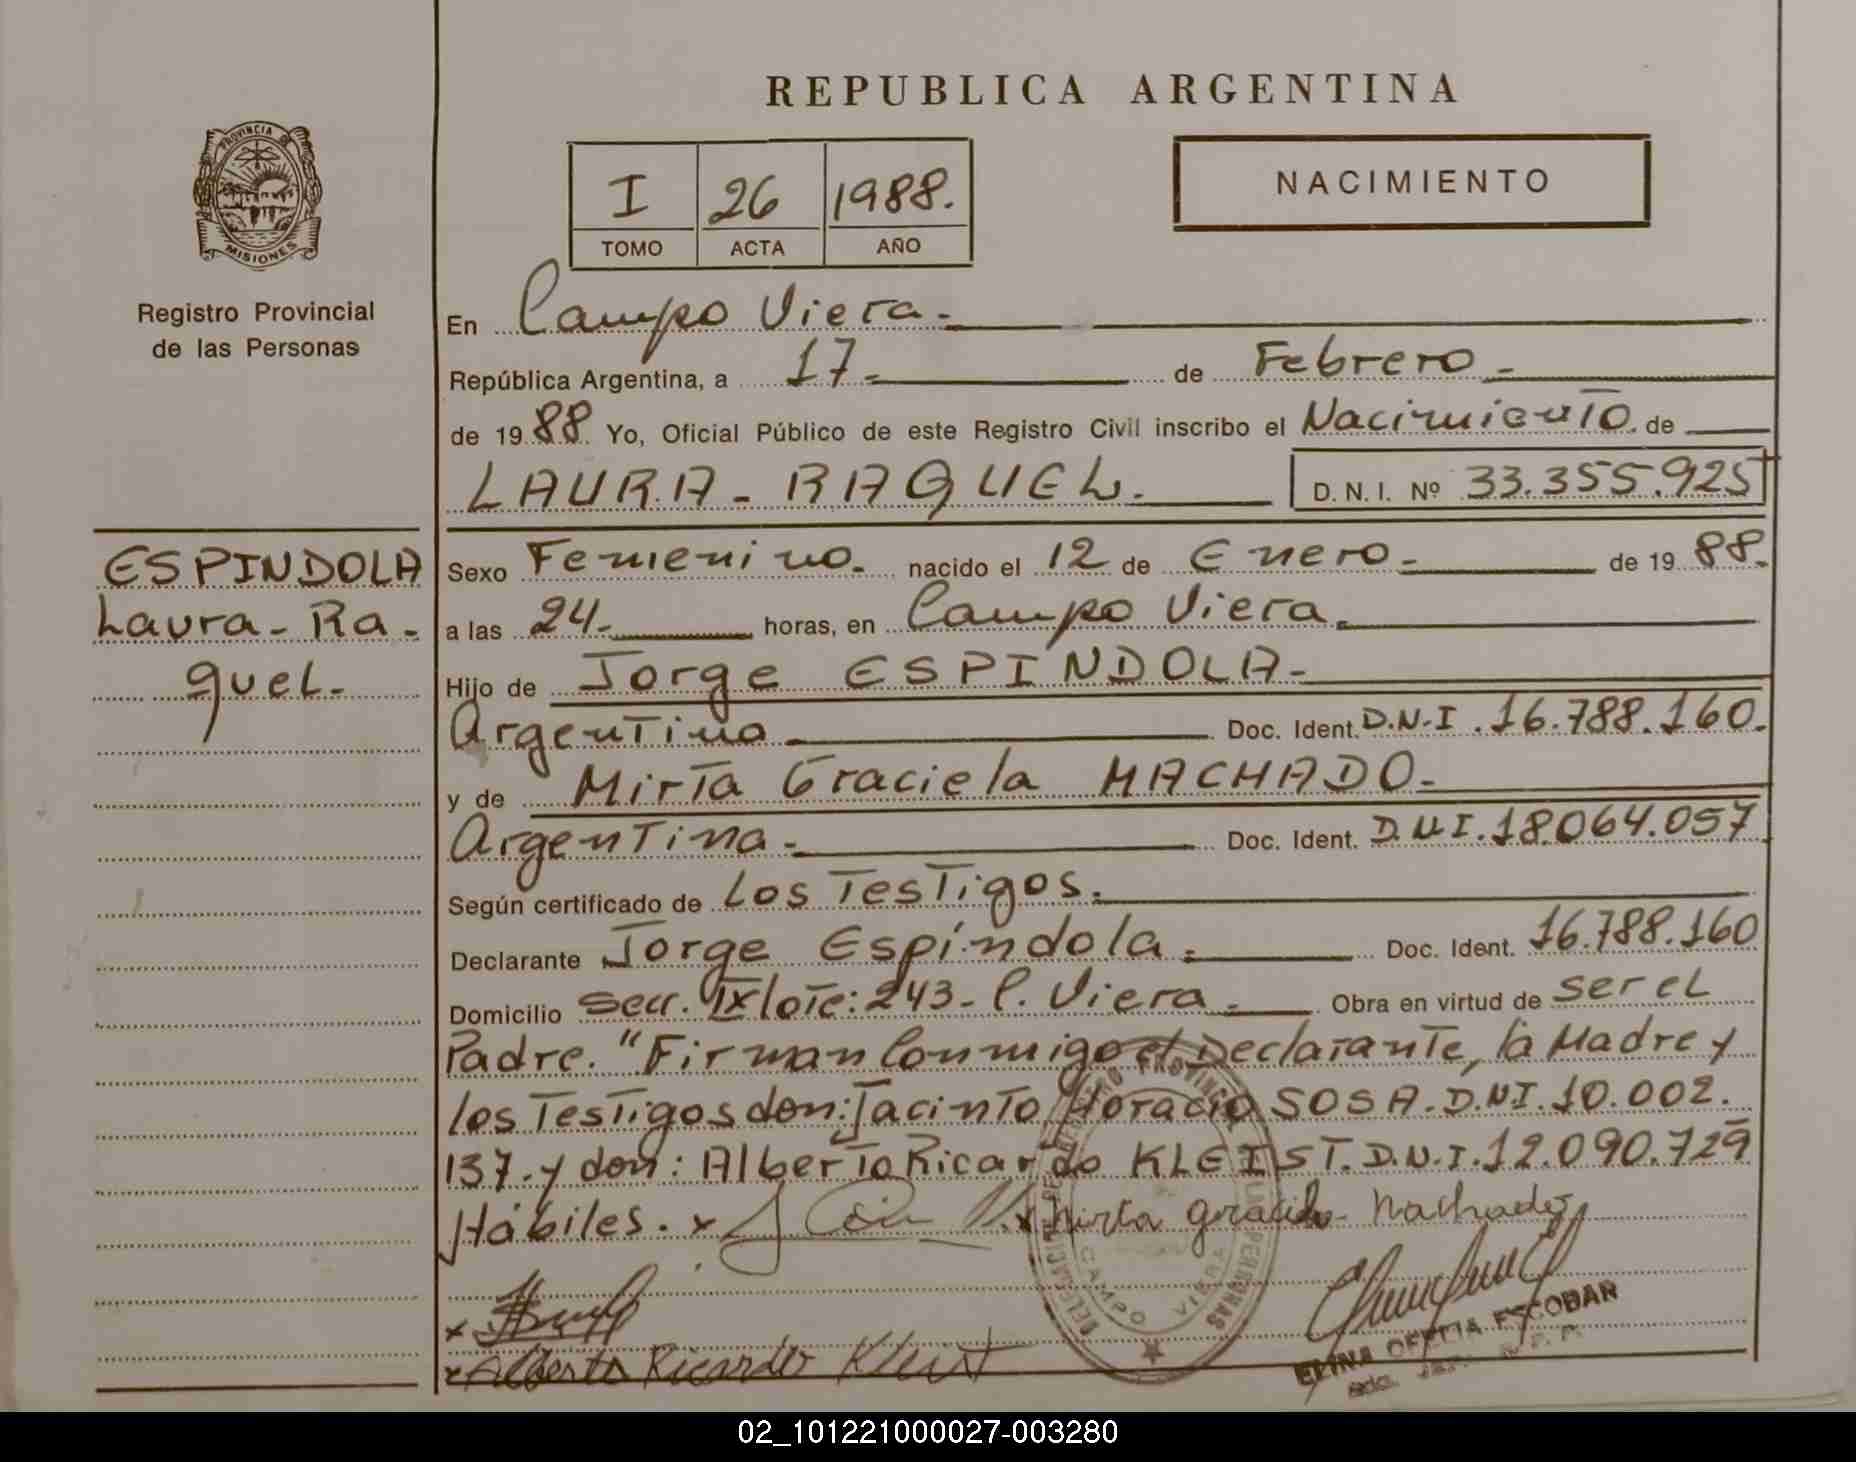 REPUBLICA ARGENTINA
PROVINCIA DE
MISIONES
Registro Provincial
de las Personas
I 26 1988.
TOMO ACTA AÑO
NACIMIENTO
En Campo Viera.
República Argentina, a 17 de Febrero
de 1988 Yo, Oficial Público de este Registro Civil inscribo el Nacimiento de
LAURA - RAQUEL. D. N. I. Nº 33.355.925
ESPINDOLA
Laura - Ra -
quel.
Sexo Femenino. nacido el 12 de Enero. de 1988.
a las 24. horas, en Campo Viera.
Hijo de Jorge ESPINDOLA.
Argentino Doc. Ident. D.N.I. 16.788.160.
y de Mirta Graciela MACHADO.
Argentina. Doc. Ident. D.N.I. 18.064.057
Según certificado de Los Testigos.
Declarante Jorge Espíndola. Doc. Ident. 16.788.160
Domicilio Secc. IX lote: 243 - C. Viera. Obra en virtud de ser el
Padre. "Firman Conmigo el Declarante, la Madre y
los Testigos don: Jacinto Horacio SOSA. D.N.I. 10.002.
137. y don: Alberto Ricardo KLEIST. D.N.I. 12.090.729
Hábiles. x x Mirta graciela Machado
x
x Alberto Ricardo Kleist
CAMPO VIERA
ELINA OFELIA ESCOBAR
02_101221000027-003280